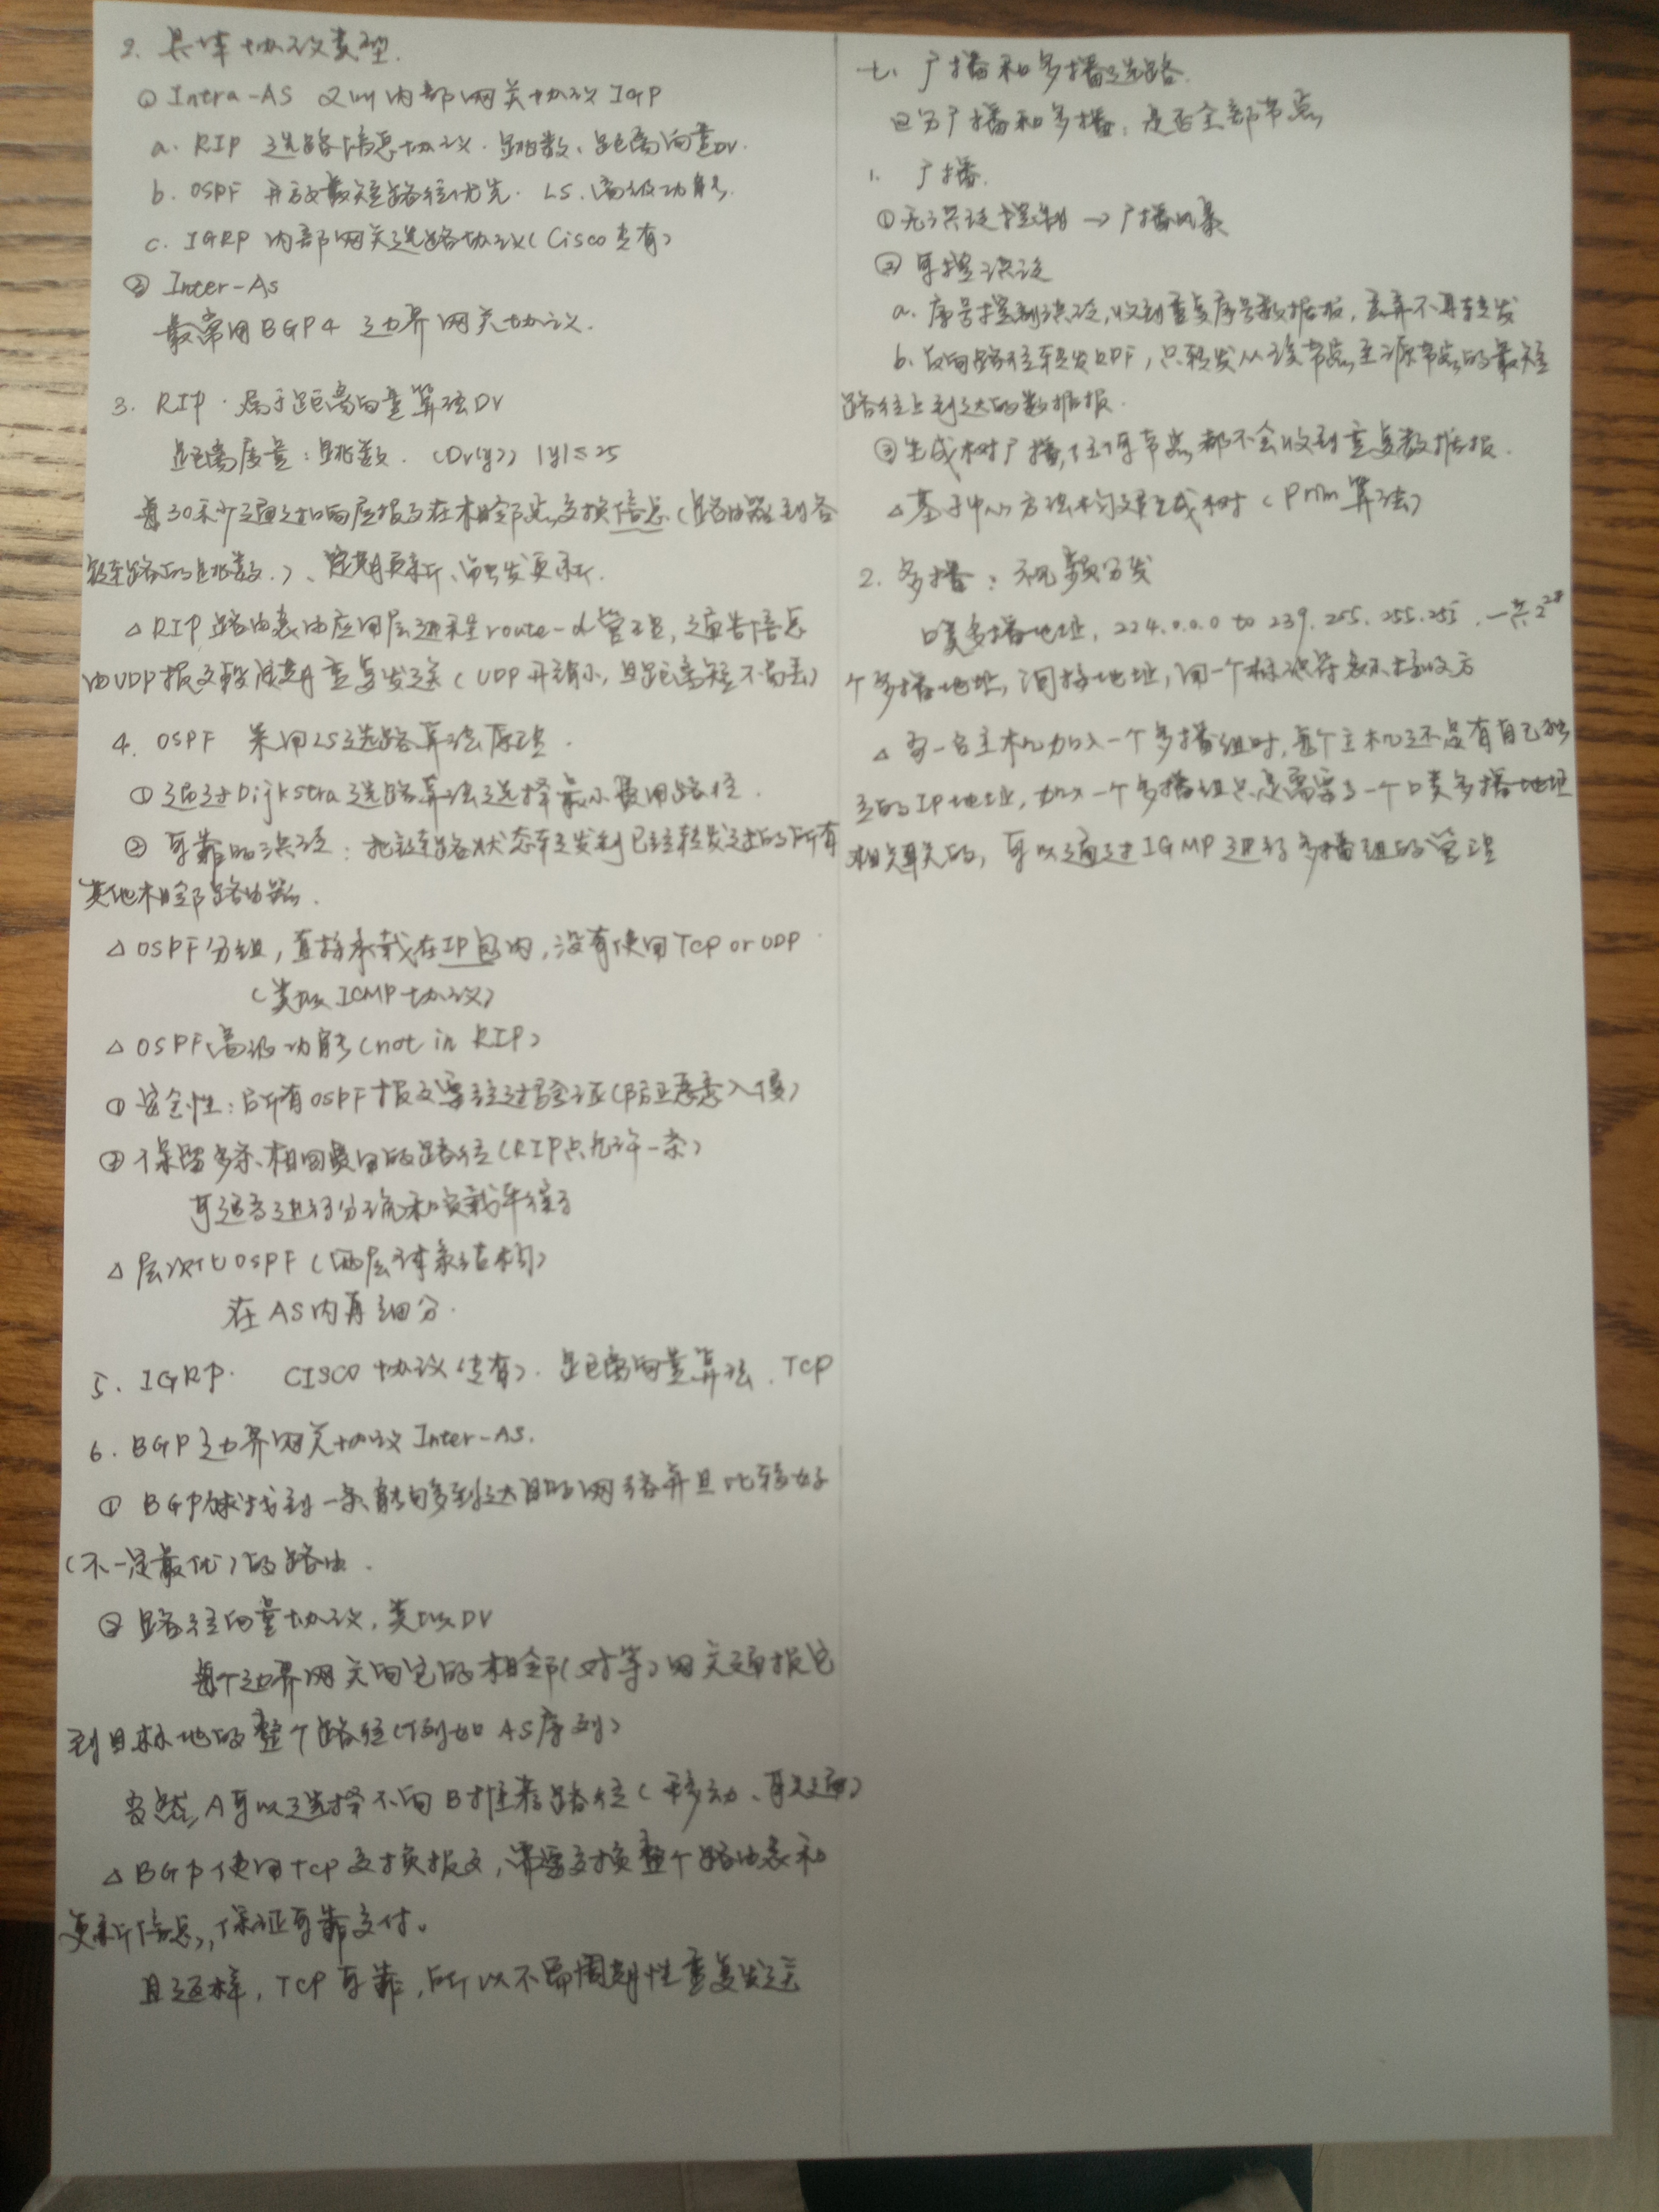 2. 具体协议类型.
① Intra-AS 又叫内部网关协议 IGP
a. RIP 选路信息协议. 跳数、距离向量DV.
b. OSPF 开放最短路径优先. LS、高级功能.
c. IGRP 内部网关选路协议(Cisco专有)
② Inter-AS
最常用BGP4 边界网关协议.
3. RIP. 属于距离向量算法DV
距离度量:跳数. (Dv(y)) |y|≤25
每30秒通过响应报文在相邻点交换信息(路由器到各
链路的跳数.)、定期更新、触发更新.
△RIP路由表由应用层进程route-d管理,通告信息
由UDP报文段周期重复发送(UDP开销小,且距离短不易丢)
4. OSPF 采用LS选路算法原理.
①通过Dijkstra选路算法选择最小费用路径.
② 可靠的洪泛:把链路状态转发到已经转发过的所有
其他相邻路由器.
△OSPF分组,直接承载在IP包内,没有使用TCP or UDP
(类似ICMP协议)
△OSPF高级功能(not in RIP)
①安全性:所有OSPF报文要经过验证(防止恶意入侵)
②保留多条相同费用的路径(RIP只允许一条)
可适当进行分流和负载平衡
△层次化OSPF(两层体系结构)
在AS内再细分.
5. IGRP. CISCO协议(专有). 距离向量算法. TCP
6. BGP边界网关协议 Inter-AS.
① BGP 找到一条能够到达目的网络并且比较好
(不一定最优)的路由.
② 路径向量协议,类似DV
每个边界网关向它的相邻(对等)网关通报它
到目标地的整个路径(例如AS序列)
当然,A可以选择不向B推荐路径(移动、联通)
△BGP使用TCP交换报文,需要交换整个路由表和
更新信息,保证可靠交付。
且这样,TCP可靠,所以不需周期性重复发送
七、广播和多播选路.
区分广播和多播:是否全部节点
1. 广播.
①无洪泛控制→广播风暴
②可控洪泛
a. 序号控制洪泛,收到重复序号数据报,丢弃不再转发
b. 反向路径转发RPF,只转发从该节点至源节点的最短
路径上到达的数据报.
③生成树广播,任何节点都不会收到重复数据报.
△基于中心方法构建生成树(Prim算法)
2. 多播:视频分发
D类多播地址,224.0.0.0 to 239.255.255.255. 一共2^28
个多播地址,间接地址,用一个标识符表示接收方
△ 当一台主机加入一个多播组时,每个主机还是有自己独
立的IP地址,加入一个多播组只是需要与一个D类多播地址
相关联的,可以通过IGMP进行多播组的管理